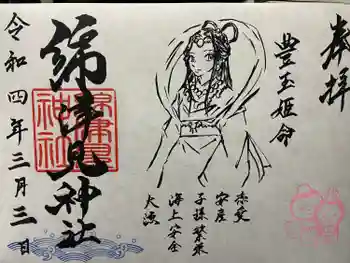 奉拝
豊玉姫命
恋愛
安産
子孫繁栄
海上安全
大漁
綿津見神社
令和四年三月三日